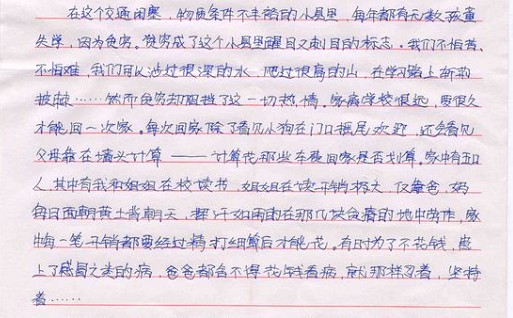 在这个交通闭塞，物质条件不丰裕的小县里，每年都有无数孩童
失学，因为贫穷。贫穷成了这个小县里醒目又刺目的标志。我们不怕苦、
不怕难，我们可以涉过很深的水，爬过很高的山，在学习路上斩荆
披棘……然而贫穷却阻挡了这一切热情。家离学校很远，要很久
才能回一次家。每次回家除了看见小狗在门口摇尾欢迎，还会看见
父母靠在墙头计算——计算花那些车费回家是否划算。家中有五口
人，其中有我和姐姐在校读书，姐姐在读开销大，仅靠爸，妈
每日面朝黄土背朝天，挥汗如雨的在那几块贫瘠的地中劳作，家
中每一笔开销都要经过精打细算后才能花。有时为了不花钱，患
上了感冒之类的病，爸爸都舍不得花钱看病，就那样忍着，坚持
着……